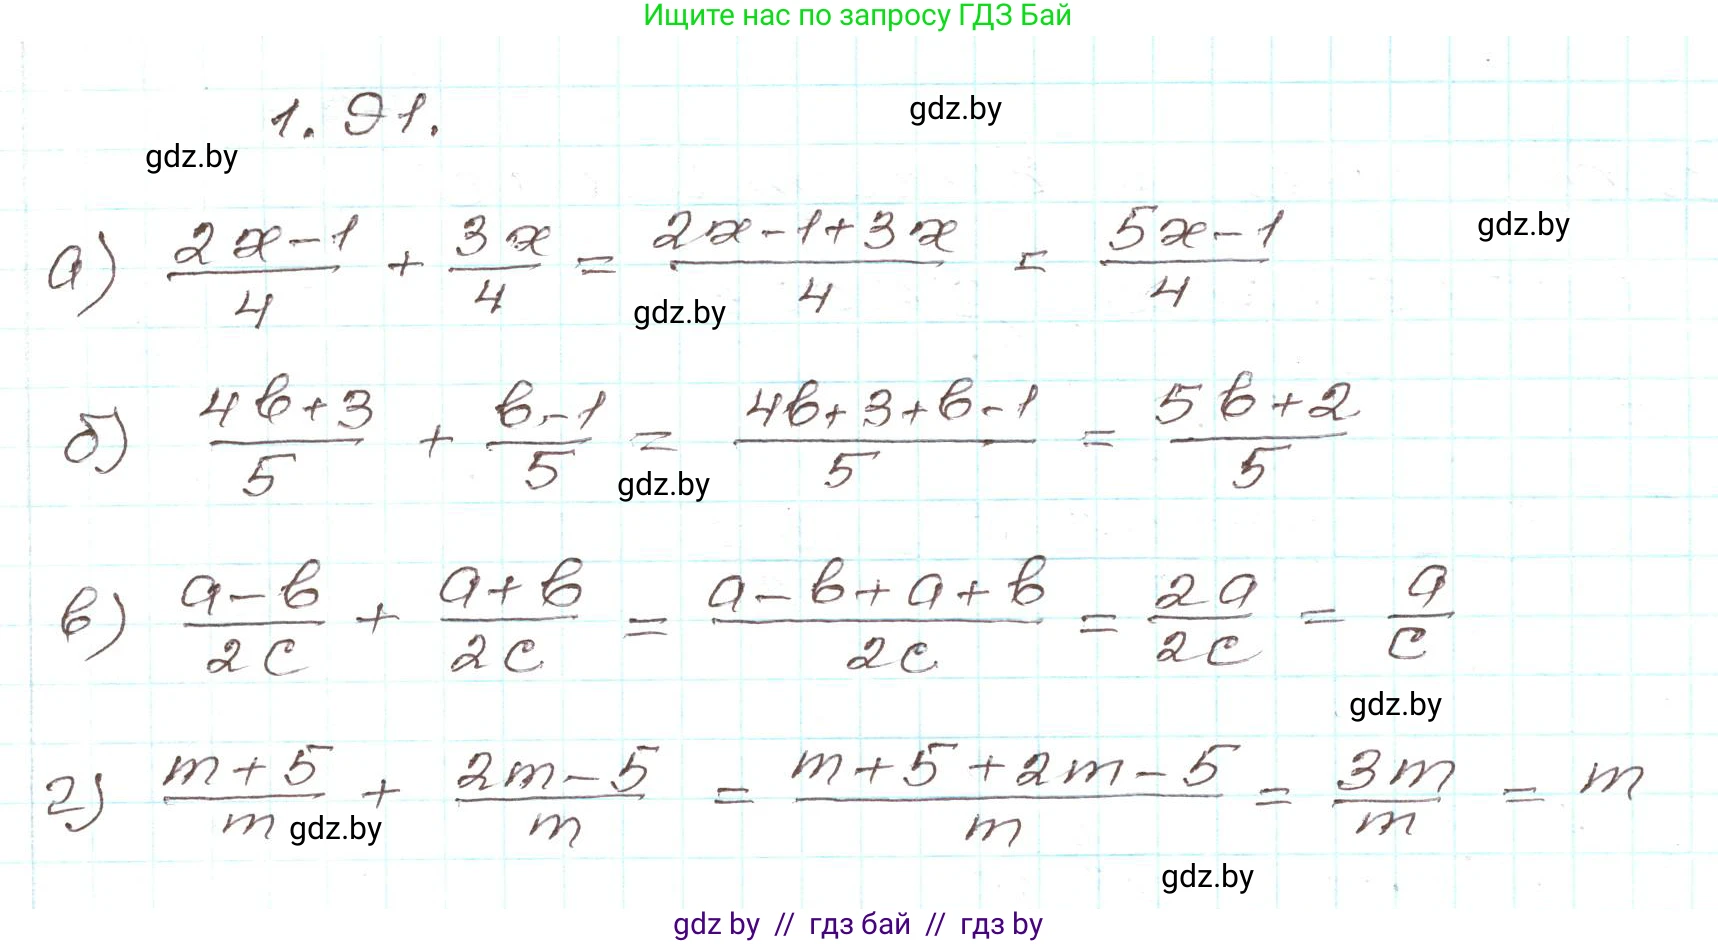 Ищите нас по запросу ГДЗ Бай
1.91.
gdz.by
gdz.by
а) (2x-1)/4 + 3x/4 = (2x-1+3x)/4 = (5x-1)/4
gdz.by
gdz.by
б) (4b+3)/5 + (b-1)/5 = (4b+3+b-1)/5 = (5b+2)/5
gdz.by
в) (a-b)/2c + (a+b)/2c = (a-b+a+b)/2c = 2a/2c = a/c
gdz.by
г) (m+5)/m + (2m-5)/m = (m+5+2m-5)/m = 3m/m = m
gdz.by
gdz.by
gdz by // гдз бай // гдз by